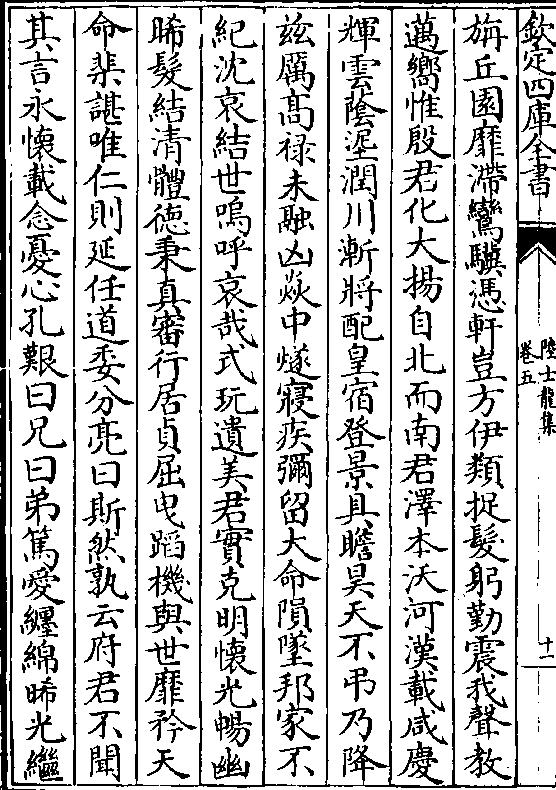 欽定四庫全書
陸士龍集
卷五
十一
旃丘園靡滯鸞驥憑軒豈方伊類捉髮躬勤震我聲教
邁嚮惟殷君化大揚自北而南君澤本沃河漢載咸慶
輝雲蔭垩潤川漸將配皇宿登景具瞻昊天不弔乃降
茲厲髙禄未融凶焱中燧寢疾彌留大命隕墜邦家不
紀沈哀結世嗚呼哀哉式玩遺美君實克明懐光暢幽
晞髮結清體徳秉真審行居貞屈曳蹈機與世靡矜天
命棐諶唯仁則延任道委分亮曰斯然孰云府君不聞
其言永懐載念憂心孔艱曰兄曰弟篤愛纏綿晞光繼